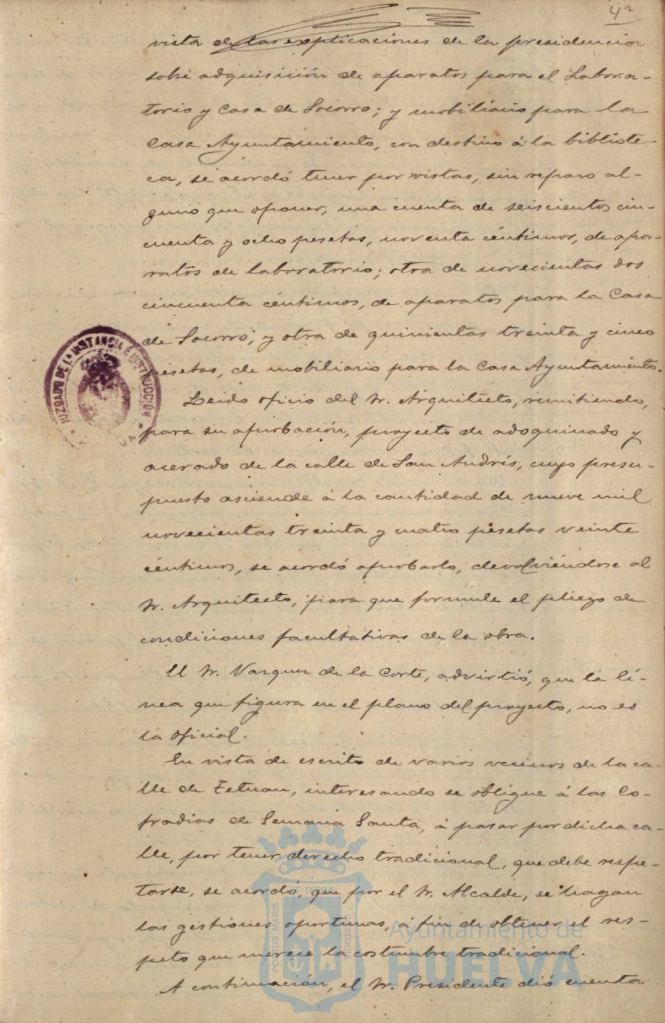 42
vista de las explicaciones de la presidencia
sobre adquisición de aparatos para el Labora-
torio y Casa de Socorro; y mobiliario para la
Casa Ayuntamiento, con destino á la bibliote-
ca, se acordó tener por vistas, sin reparo al-
guno que oponer, una cuenta de seiscientos cin-
cuenta y ocho pesetas, noventa céntimos, de apa-
ratos de laboratorio; otra de novecientas dos
cincuenta céntimos, de aparatos para la Casa
de Socorro; y otra de quinientas treinta y cinco
pesetas, de mobiliario para la Casa Ayuntamiento.
Leido oficio del Sr. Arquitecto, remitiendo,
para su aprobación, proyecto de adoquinado y
acerado de la calle de San Andrés, cuyo presu-
puesto asciende á la cantidad de nueve mil
novecientas treinta y cuatro pesetas veinte
céntimos, se acordó aprobarlo, devolviéndose al
Sr. Arquitecto, para que formule el pliego de
condiciones facultativas de la obra.
El Sr. Vazquez de la Corte, advirtió, que la lí-
nea que figura en el plano del proyecto, no es
la oficial.
En vista de escrito de varios vecinos de la ca-
lle de Tetuan, interesando se obligue á las Co-
fradias de Semana Santa, á pasar por dicha ca-
lle, por tener derecho tradicional, que debe respe-
tarse, se acordó, que por el Sr. Alcalde, se hagan
las gestiones oportunas, á fin de obtener el res-
peto que merece la costumbre tradicional.
A continuación, el Sr. Presidente dió cuenta
JUZGADO DE 1ª INSTANCIA E INSTRUCCION
PORTUS MARIS
Ayuntamiento de
HUELVA